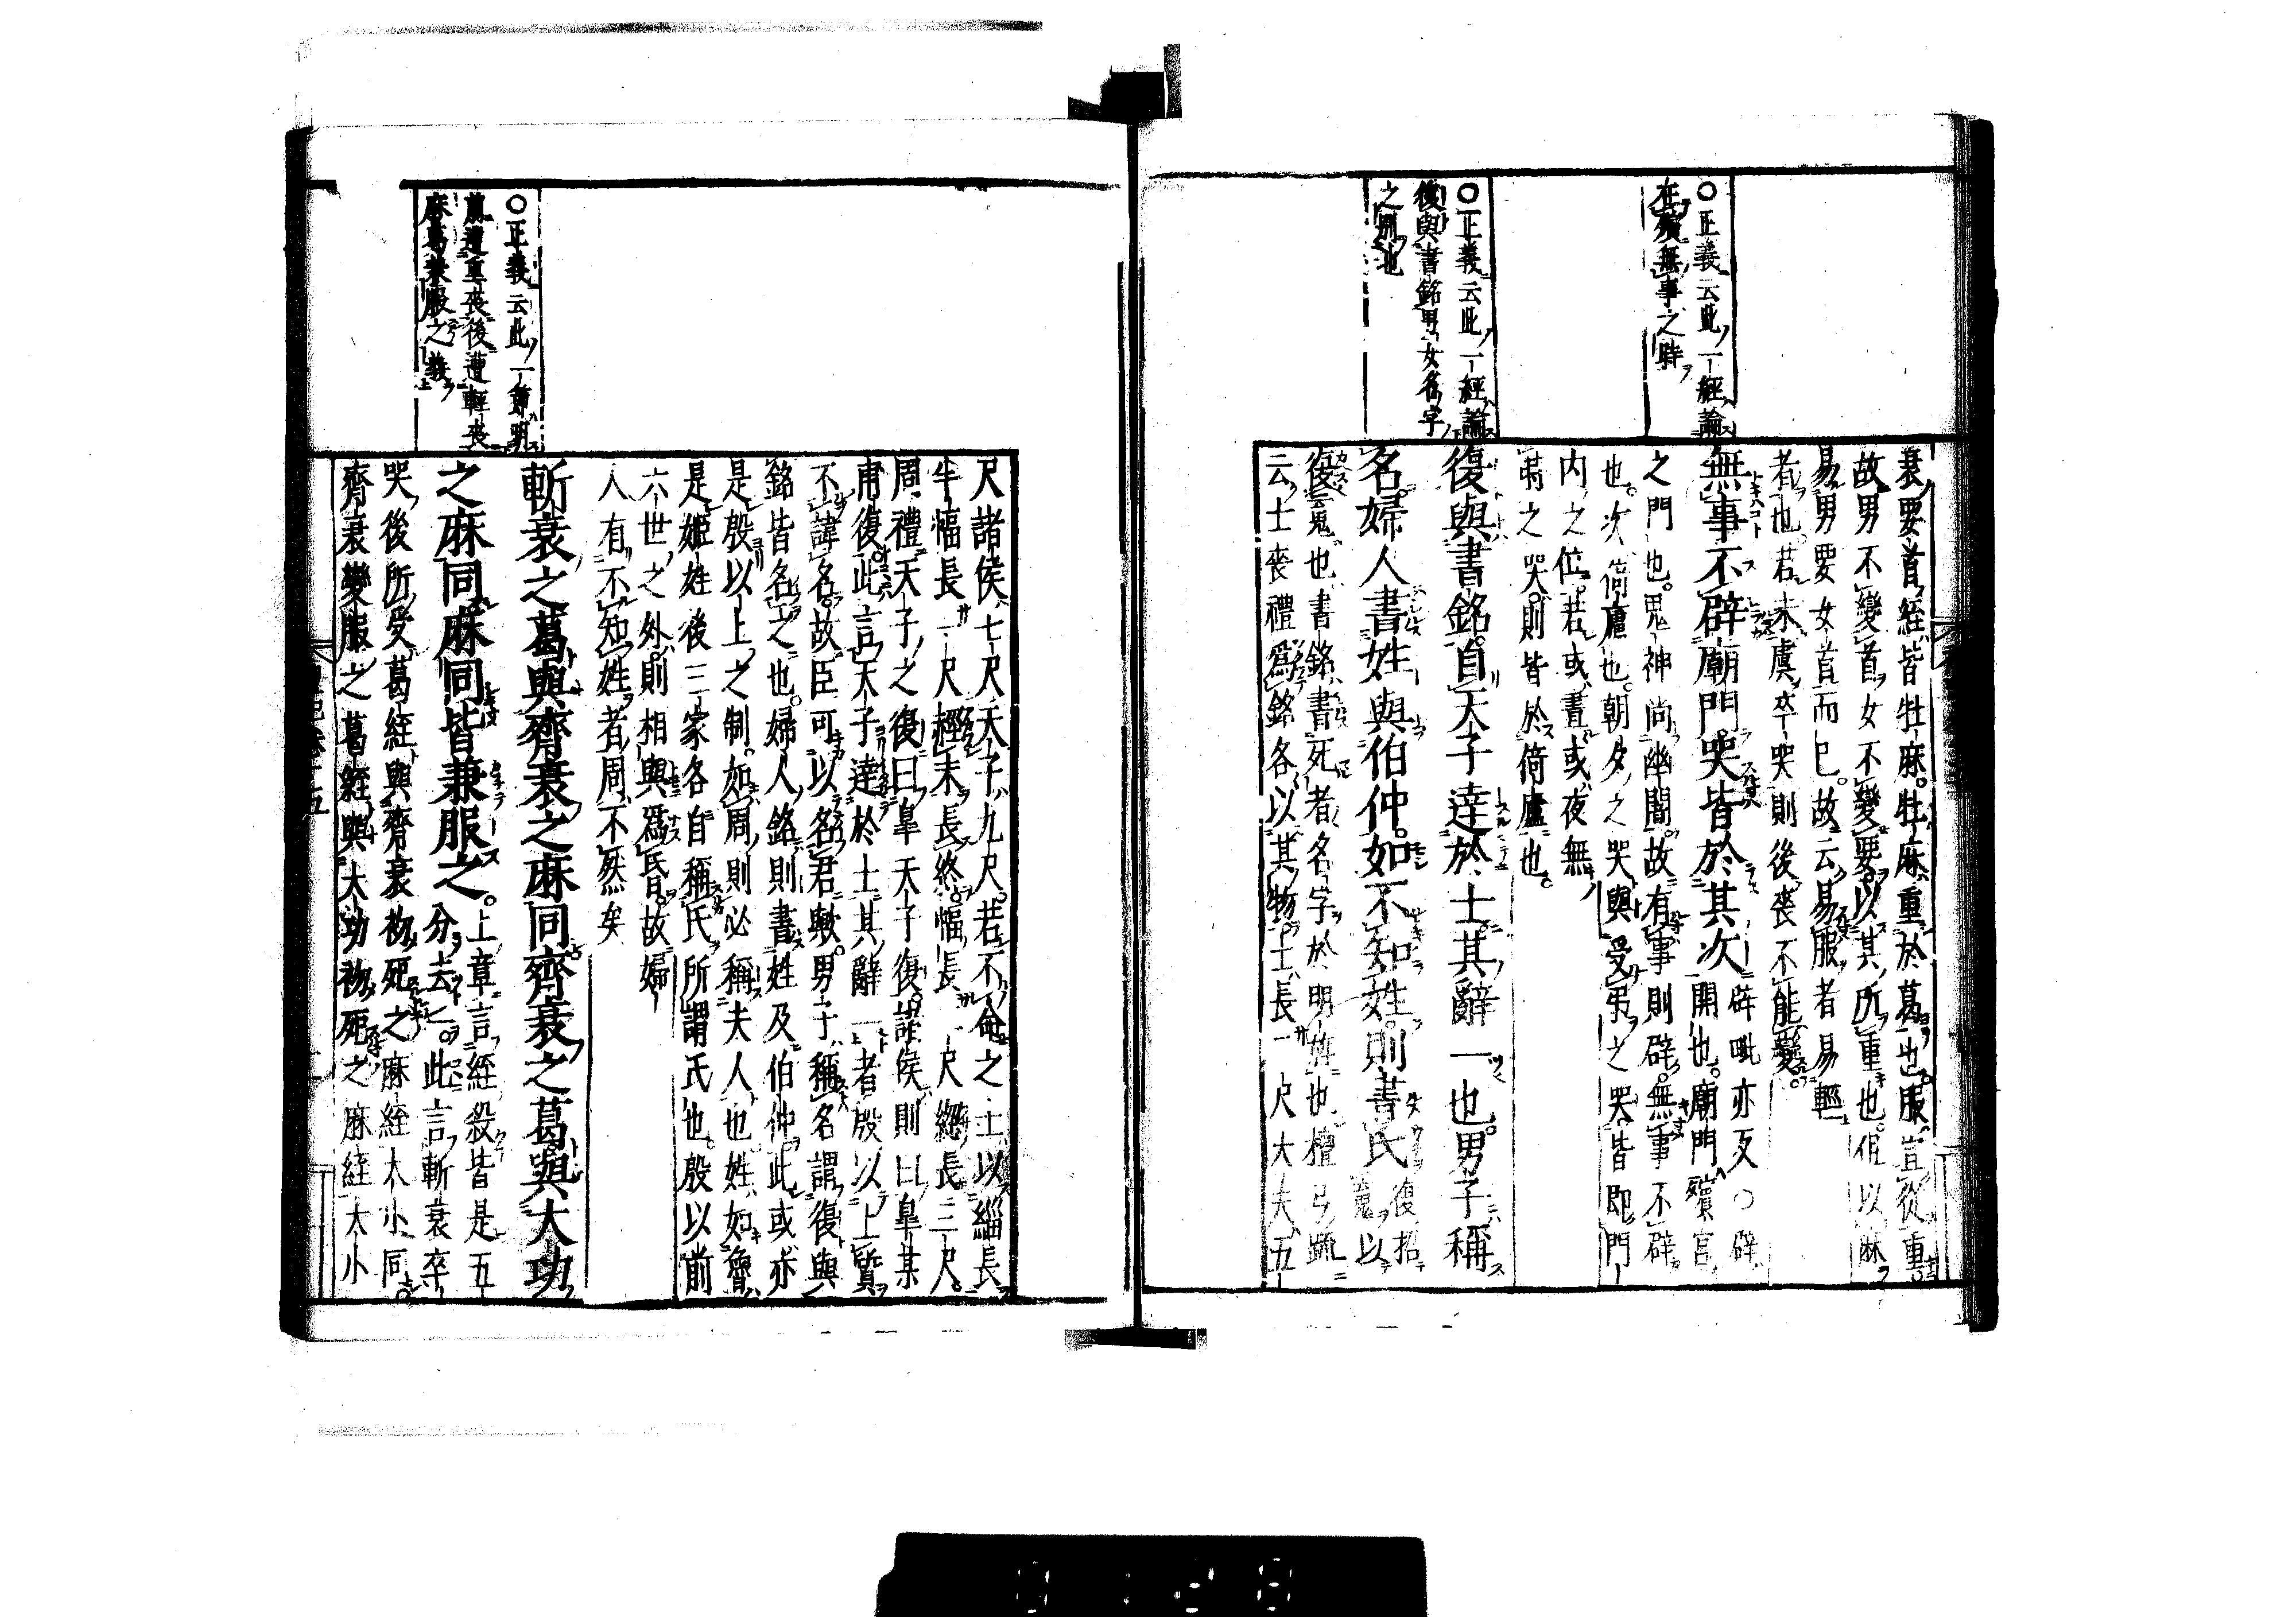 〇正義云此一經論
在殯無事之時
〇正義云此一經論
復與書銘男女名字
之別也
衰要首絰皆牡麻牡麻重於葛也服宜從重
故男不變首女不變要以其所重也但以麻
易男要女首而已故云易服者易輕
者也若未虞卒哭則後喪不能變
無事不辟廟門哭皆於其次
辟毗亦反〇辟
開也廟門殯宮
之門也鬼神尚幽闇故有事則辟無事不辟
也次倚廬也朝夕之哭與受弔之哭皆即門
內之位若或晝或夜無
時之哭則皆於倚廬也
復與書銘自天子達於士其辭一也男子稱
名婦人書姓與伯仲如不知姓則書氏
復招
魂以
復魂也書銘書死者名字於明旌也檀弓疏
云士喪禮爲銘各以其物士長三尺大夫五
〇正義云此一節明
前遭重喪後遭輕喪
麻葛兼服之義
尺諸侯七尺天子九尺若不命之士以緇長
半幅長一尺經末長終幅長二尺緫長三尺
周禮天子之復曰皐天子復諸侯則曰皐某
甫復此言天子達於士其辭一者殷以上質
不諱名故臣可以名君歟男子稱名謂復與
銘皆名之也婦人銘則書姓及伯仲此或亦
是殷以上之制如周則必稱夫人也姓如魯
是姬姓後三家各自稱氏所謂氏也殷以前
六世之外則相與爲昏故婦
人有不知姓者周不然矣
斬衰之葛與齊衰之麻同齊衰之葛與大功
之麻同麻同皆兼服之
上章言絰殺皆是五
分去一此言斬衰卒
哭後所受葛絰與齊衰初死之麻絰大小同
齊衰變服之葛絰與大功初死之麻絰大小
五
0128